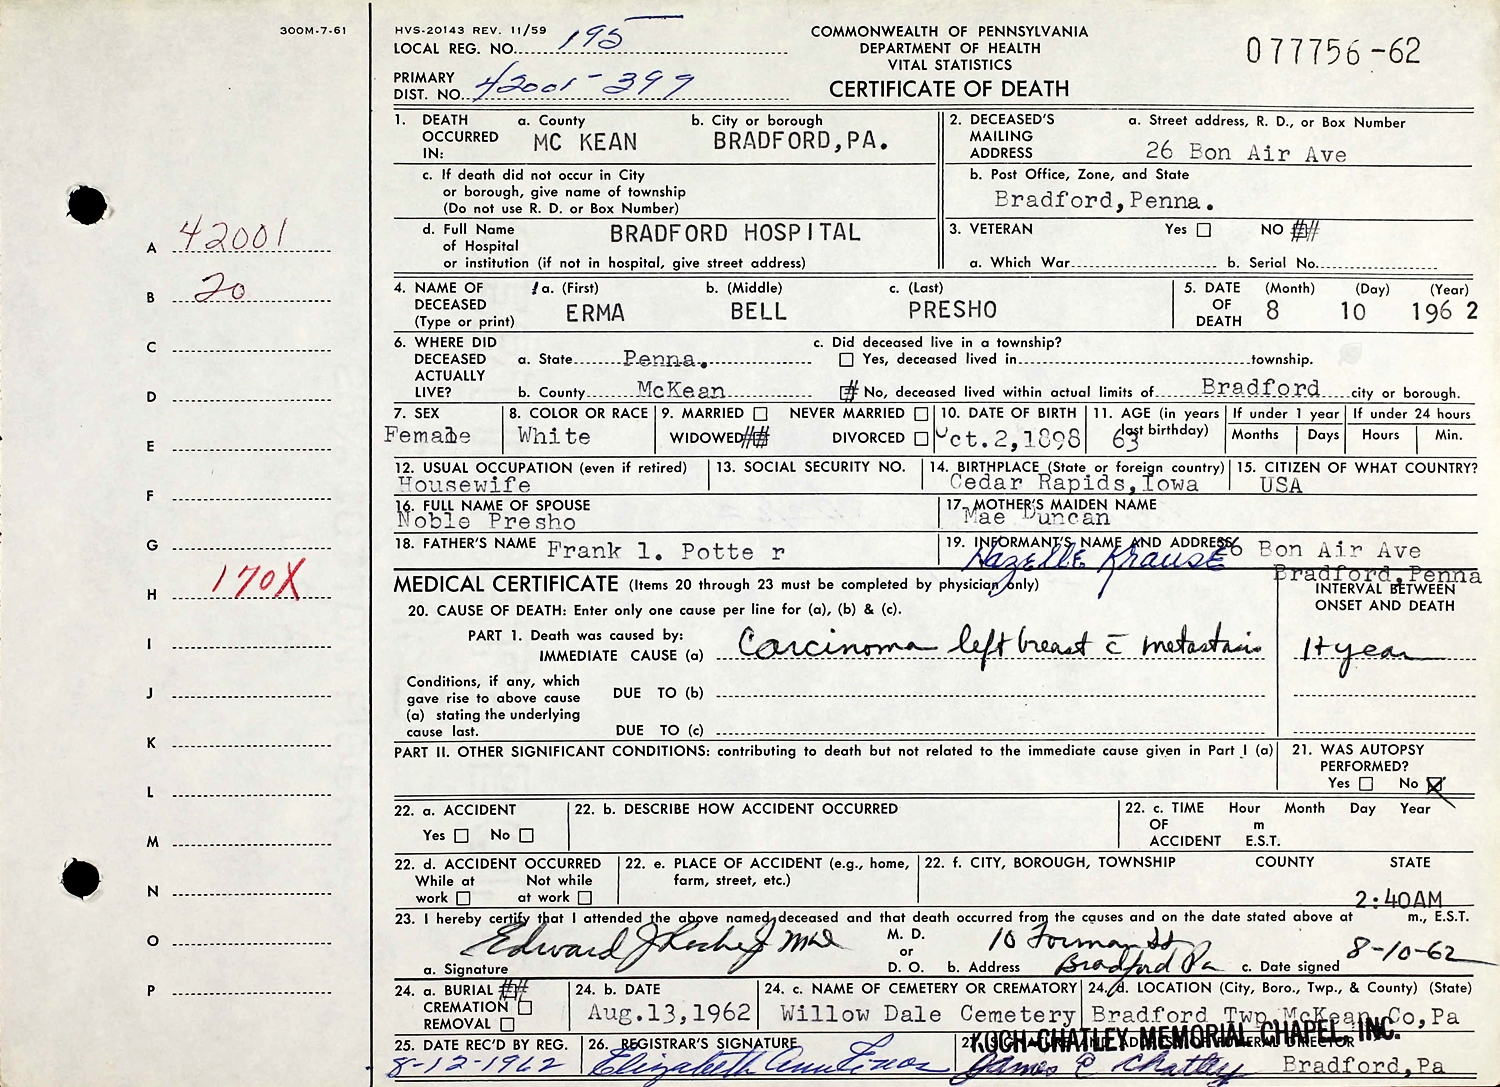 300M-7-61
HVS-20143 REV. 11/59
LOCAL REG. NO. 195
PRIMARY
DIST. NO. 42001-399
COMMONWEALTH OF PENNSYLVANIA
DEPARTMENT OF HEALTH
VITAL STATISTICS
CERTIFICATE OF DEATH
077756-62
1. DEATH OCCURRED IN:
a. County
MC KEAN
b. City or borough
BRADFORD,PA.
c. If death did not occur in City
or borough, give name of township
(Do not use R. D. or Box Number)
d. Full Name
of Hospital
or institution (if not in hospital, give street address)
BRADFORD HOSPITAL
2. DECEASED'S MAILING ADDRESS
a. Street address, R. D., or Box Number
26 Bon Air Ave
b. Post Office, Zone, and State
Bradford,Penna.
3. VETERAN Yes NO ##
a. Which War b. Serial No.
4. NAME OF DECEASED (Type or print)
a. (First) b. (Middle) c. (Last)
ERMA BELL PRESHO
5. DATE OF DEATH (Month) (Day) (Year)
8 10 1962
6. WHERE DID DECEASED ACTUALLY LIVE?
a. State Penna.
b. County McKean
c. Did deceased live in a township?
Yes, deceased lived in township.
# No, deceased lived within actual limits of Bradford city or borough.
7. SEX
Female
8. COLOR OR RACE
White
9. MARRIED NEVER MARRIED
WIDOWED ## DIVORCED
10. DATE OF BIRTH
Oct.2,1898
11. AGE (in years last birthday)
63
If under 1 year
Months Days
If under 24 hours
Hours Min.
12. USUAL OCCUPATION (even if retired)
Housewife
13. SOCIAL SECURITY NO.
14. BIRTHPLACE (State or foreign country)
Cedar Rapids,Iowa
15. CITIZEN OF WHAT COUNTRY?
USA
16. FULL NAME OF SPOUSE
Noble Presho
17. MOTHER'S MAIDEN NAME
Mae Duncan
18. FATHER'S NAME Frank l. Potte r
19. INFORMANT'S NAME AND ADDRESS
Hazelle Krause 26 Bon Air Ave
Bradford,Penna
MEDICAL CERTIFICATE (Items 20 through 23 must be completed by physician only)
INTERVAL BETWEEN
ONSET AND DEATH
20. CAUSE OF DEATH: Enter only one cause per line for (a), (b) & (c).
PART 1. Death was caused by:
IMMEDIATE CAUSE (a) Carcinoma left breast c̄ metastasis 1+ year
Conditions, if any, which
gave rise to above cause
(a) stating the underlying
cause last.
DUE TO (b)
DUE TO (c)
PART II. OTHER SIGNIFICANT CONDITIONS: contributing to death but not related to the immediate cause given in Part I (a)
21. WAS AUTOPSY
PERFORMED?
Yes No X
22. a. ACCIDENT
Yes No
22. b. DESCRIBE HOW ACCIDENT OCCURRED
22. c. TIME OF ACCIDENT
Hour Month Day Year
m
E.S.T.
22. d. ACCIDENT OCCURRED
While at work
Not while at work
22. e. PLACE OF ACCIDENT (e.g., home,
farm, street, etc.)
22. f. CITY, BOROUGH, TOWNSHIP COUNTY STATE
2:40AM
23. I hereby certify that I attended the above named deceased and that death occurred from the causes and on the date stated above at m., E.S.T.
Edward J Roche Jr MD
M. D.
or
D. O.
10 Forman St
Bradford Pa
8-10-62
a. Signature b. Address c. Date signed
24. a. BURIAL ##
CREMATION
REMOVAL
24. b. DATE
Aug.13,1962
24. c. NAME OF CEMETERY OR CREMATORY
Willow Dale Cemetery
24. d. LOCATION (City, Boro., Twp., & County) (State)
Bradford Twp McKean Co,Pa
25. DATE REC'D BY REG.
8-12-1962
26. REGISTRAR'S SIGNATURE
Elizabeth Ann
27. SIGNATURE AND ADDRESS OF FUNERAL DIRECTOR
KOCH-CHATLEY MEMORIAL CHAPEL INC.
James E Chatley Bradford,Pa
A 42001
B 20
C
D
E
F
G
H 170X
I
J
K
L
M
N
O
P